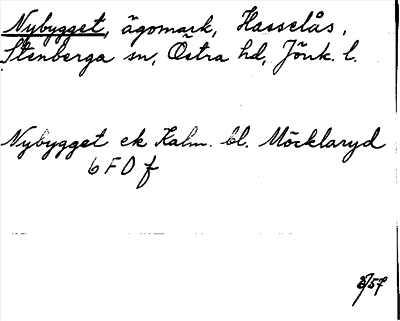 Nybygget, ägomark, Hasselås,
Stenberga sn, Östra hd, Jönk. l.
Nybygget ek Kalm. bl. Möcklaryd
6 F 0 f
8/57